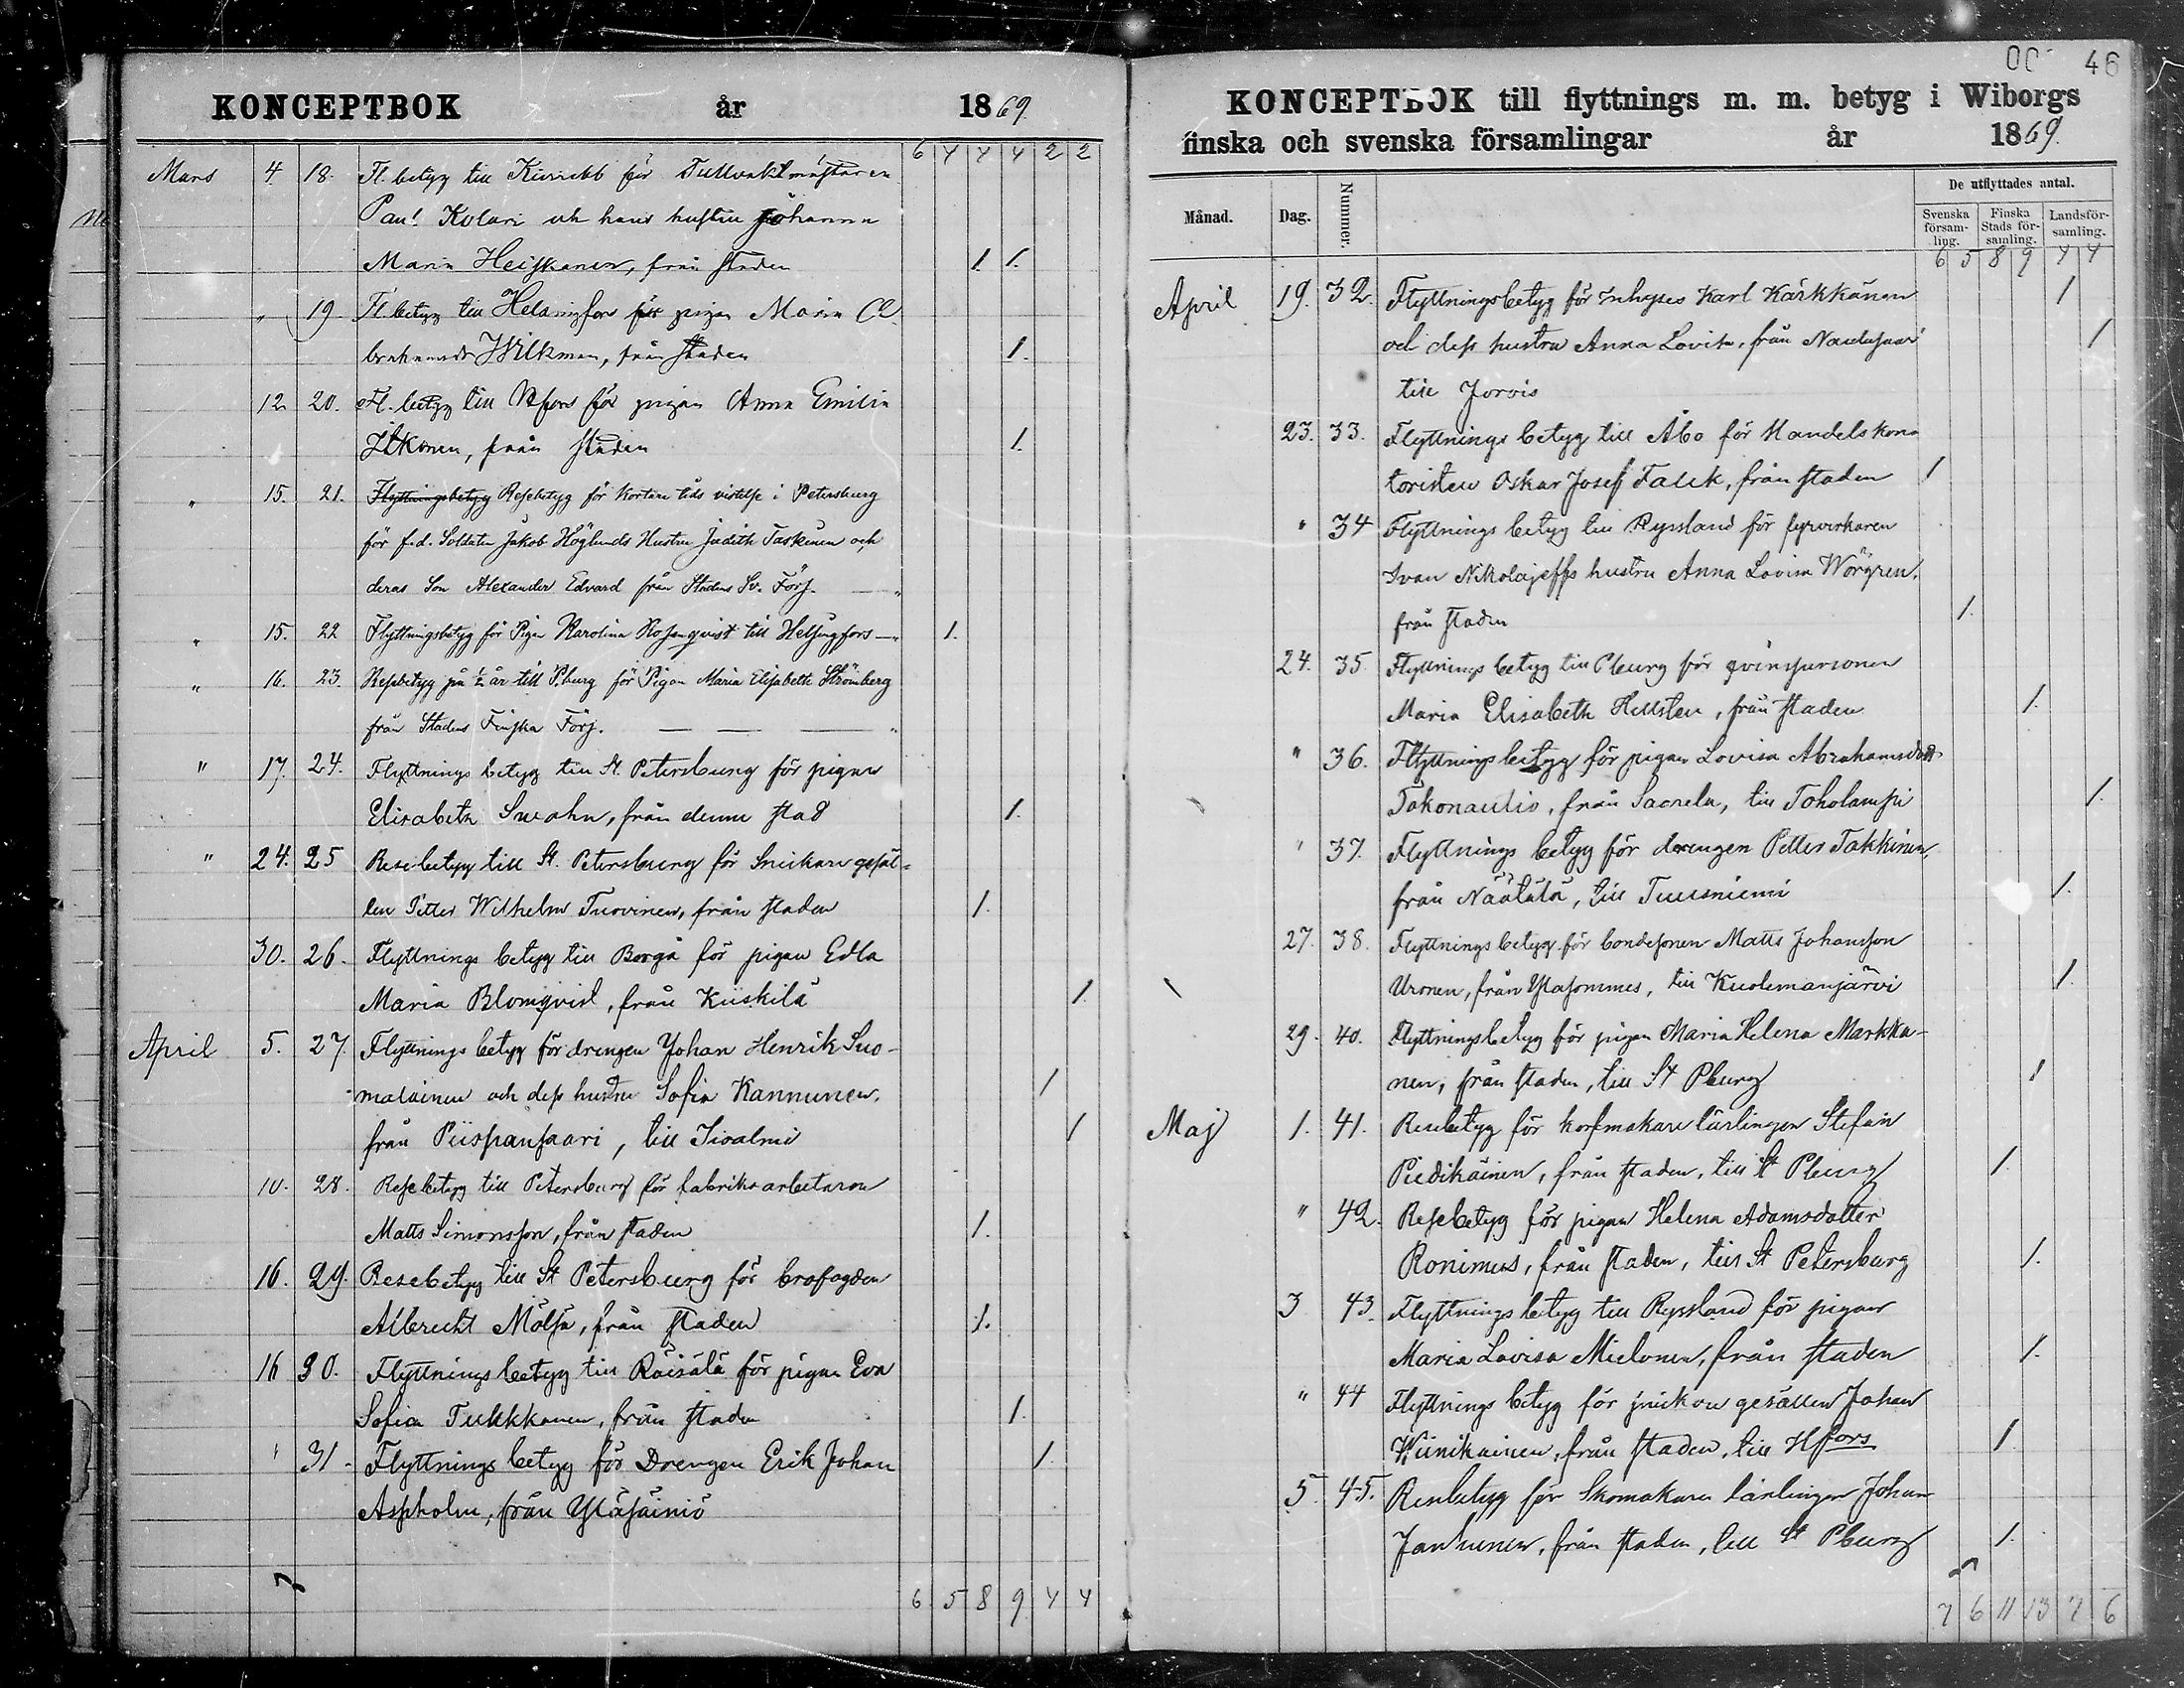 KONCEPTBOK år 1869.
6 4 4 4 2 2
Mars 4. 18. Fl. betyg till Kivinebb för Tullvaktmästaren
Paul Kolari och hans hustru Johanna
Maria Heiskanen, från staden 1. 1.
" 19 Fl. betyg till Helsingfors för pigan Maria A
brahamsdr Wilkman, från staden 1.
12 20. Fl. betyg till Hfors för pigan Anna Emilia
Itkonen, från staden 1.
" 15. 21. Flyttningsbetyg Resebetyg för kortare tids vistelse i Petersburg
för f.d. Soldaten Jakob Höglunds Hustru Judith Taskinen och
deras Son Alexander Edvard från Stadens Sv. Förs.
" 15. 22 Flyttningsbetyg för Pigan Karolina Rosenqvist till Helsingfors 1.
" 16. 23. Resebetyg på ½ år till P.burg för Pigan Maria Elisabeth Strömberg
från Stadens Finska Förs.
" 17. 24. Flyttnings betyg till St. Petersburg för pigan
Elisabeth Swahn, från denna stad 1.
" 24. 25 Resebetyg till St. Petersburg för Snickare gesäl-
len Petter Wilhelm Tuovinen, från staden 1.
30. 26. Flyttnings betyg till Borgå för pigan Edla
Maria Blomqvist, från Kiiskilä 1.
April 5. 27. Flyttnings betyg för drengen Johan Henrik Suo-
malainen och dess hustru Sofia Kannunen, 1
från Piispansaari, till Iisalmi 1
10. 28. Resebetyg till Petersburg för fabriksarbetaren
Matts Simonsson, från staden 1.
16. 29. Resebetyg till St Petersburg för brofogden
Albrecht Mölsä, från staden 1.
16 30. Flyttnings betyg till Räisälä för pigan Eva
Sofia Tukkkanen, från staden 1.
" 31. Flyttnings betyg för Drengen Erik Johan 1.
Aspholm, från Yläsäiniö
6 5 8 9 4 4
00 46
KONCEPTBOK till flyttnings m. m. betyg i Wiborgs
finska och svenska församlingar år 1869.
Månad. Dag. Nummer. De utflyttades antal.
Svenska församling. Finska Stads församling. Landsförsamling.
6 5 8 9 4 4
April 19. 32. Flyttningsbetyg för Inhyses Karl Kärkkänen 1
och dess hustru Anna Lovisa, från Nautsaari 1
till Jorois
23. 33. Flyttnings betyg till Åbo för Handelskon
toristen Oskar Josef Falck, från staden 1
" 34 Flyttnings betyg till Ryssland för fyrverkaren
Ivan Nikolajeffs hustru Anna Lovisa Wörgren,
från staden 1.
24. 35. Flyttnings betyg till Pburg för qvinspersonen
Maria Elisabeth Hellsten, från staden 1.
" 36. Flyttnings betyg för pigan Lovisa Abrahamsdott
Takonautio, från Saarela, till Toholampi 1.
" 37. Flyttnings betyg för drengen Petter Takkinen,
från Näätälä, till Tuusniemi 1.
27. 38. Flyttnings betyg för bondesonen Matts Johansson
Uronen, från Yläsommes, till Kuolemanjärvi 1.
29. 40. Flyttningsbetyg för pigan Maria Helena Markka-
nen, från staden, till St Pburg 1
Maj 1. 41. Resebetyg för korfmakare lärlingen Stefan
Piedikäinen, från staden, till St Pburg 1.
" 42. Resebetyg för pigan Helena Adamsdotter
Ronimus, från staden, till St Petersburg 1.
3 43. Flyttnings betyg till Ryssland för pigan
Maria Lovisa Mielonen, från staden 1.
" 44 Flyttnings betyg för snickare gesällen Johan
Wiinikainen, från staden, till Hfors 1.
5. 45. Resebetyg för Skomakare lärlingen Johan
Jantunen, från staden, till St Pburg 1.
7 6 11 13 7 6